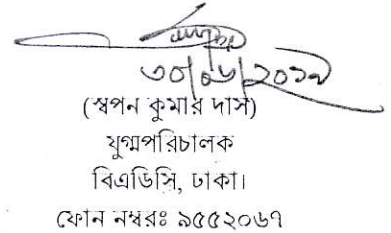 ৩০/০৬/২০১৯
(স্বপন কুমার দাস)
যুগ্মপরিচালক
বিএডিসি, ঢাকা।
ফোন নম্বরঃ ৯৫৫২০৬৭